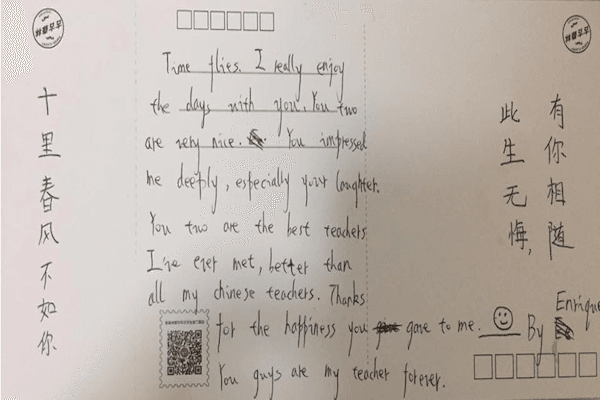 十里春风不如你
Time flies. I really enjoy
the days with you. You two
are very nice. You impressed
me deeply, especially your laughter.
You two are the best teachers
I've ever met, better than
all my chinese teachers. Thanks
for the happiness you gave to me. By Enrique
You guys are my teacher forever.
有你相随
此生无悔,